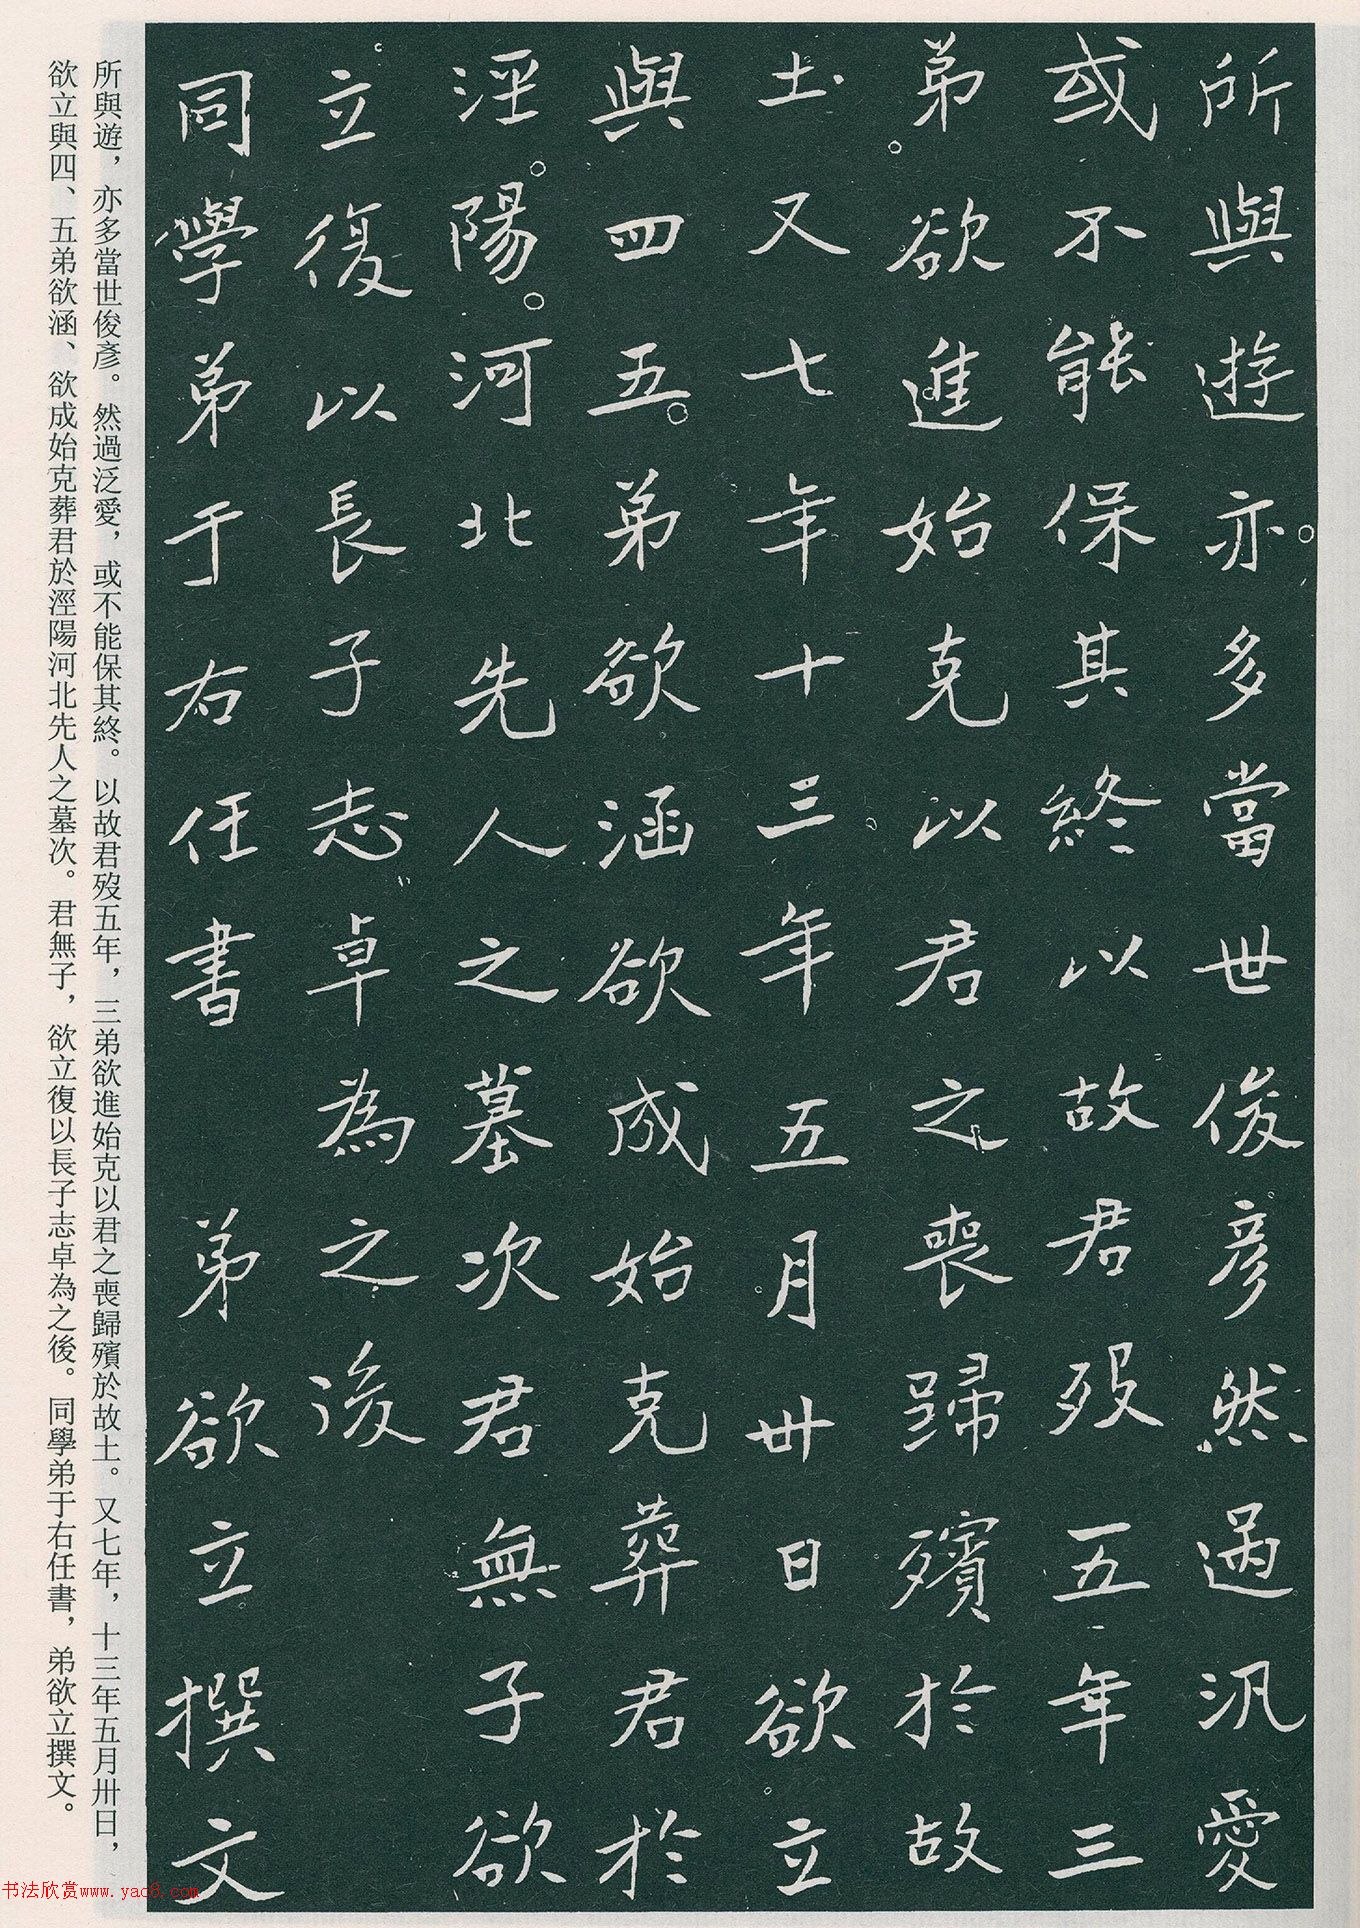 所與遊亦多當世俊彥然過汎愛
或不能保其終以故君歿五年三
弟欲進始克以君之喪歸殯於故
土又七年十三年五月卅日欲立
與四五弟欲涵欲成始克葬君於
涇陽河北先人之墓次君無子欲
立復以長子志卓為之後
同學弟于右任書 弟欲立撰文
所與遊，亦多當世俊彥。然過泛愛，或不能保其終。以故君歿五年，三弟欲進始克以君之喪歸殯於故土。又七年，十三年五月卅日，
欲立與四、五弟欲涵、欲成始克葬君於涇陽河北先人之墓次。君無子，欲立復以長子志卓為之後。同學弟于右任書，弟欲立撰文。
书法欣赏www.yac8.com